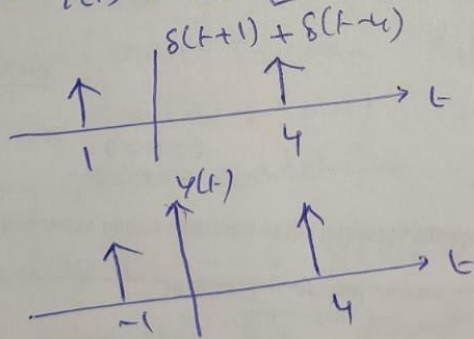 δ(t+1) + δ(t-4)
t
1
4
y(t)
t
-1
4